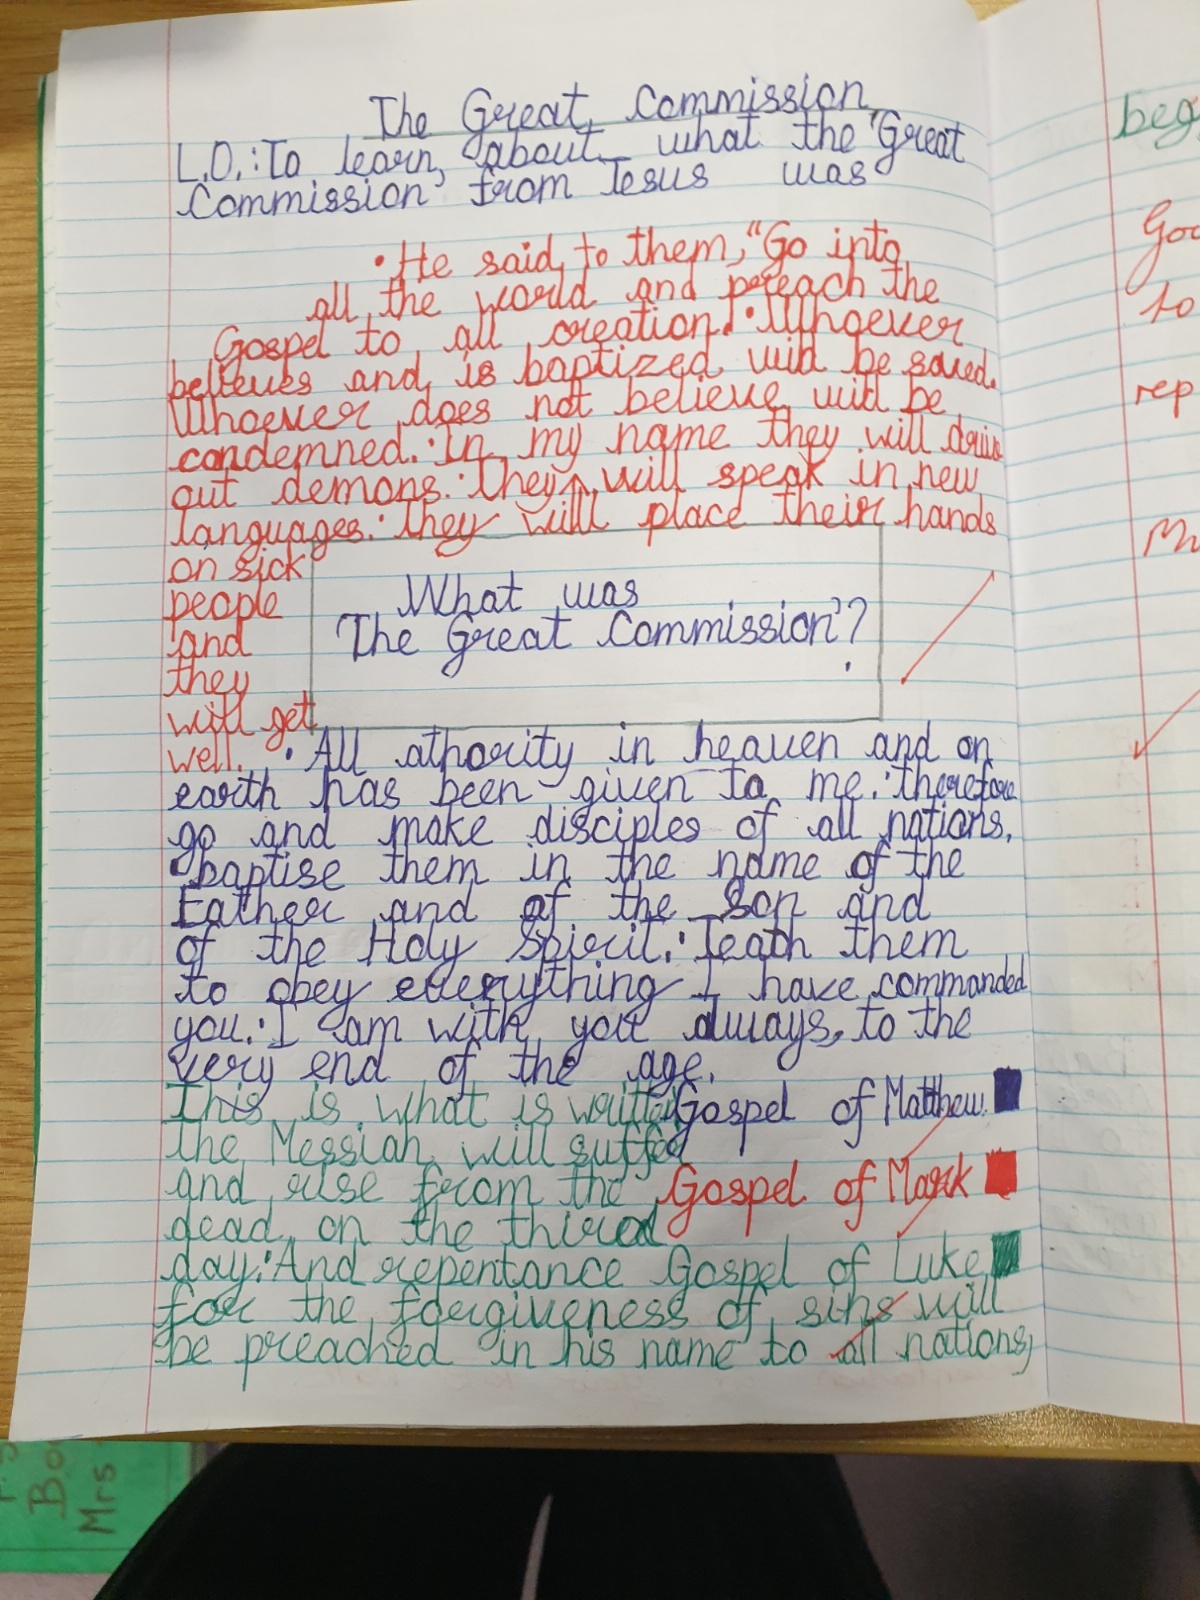 The Great Commission
L.O.: To learn about what the 'Great
Commission' from Jesus was
• He said to them, "Go into
all the world and preach the
Gospel to all creation. • Whoever
believes and is baptized will be saved.
Whoever does not believe will be
condemned. • In my name they will driv
out demons. • They will speak in new
languages. • They will place their hands
on sick
people
and
they
will get
well.
What was
'The Great Commission'?
• All athority in heaven and on
earth has been given to me. • therefore
go and make disciples of all nations,
• baptise them in the name of the
Father and of the Son and
of the Holy Spirit. • Teach them
to obey everything I have commanded
you. • I am with you always, to the
very end of the age.
This is what is written
the Messiah will suffer
and rise from the
dead on the third
day. • And repentance
for the forgiveness of sins will
be preached in his name to all nations,
Gospel of Matthew.
Gospel of Mark
Gospel of Luke
beg
to
rep
Bo
Mrs